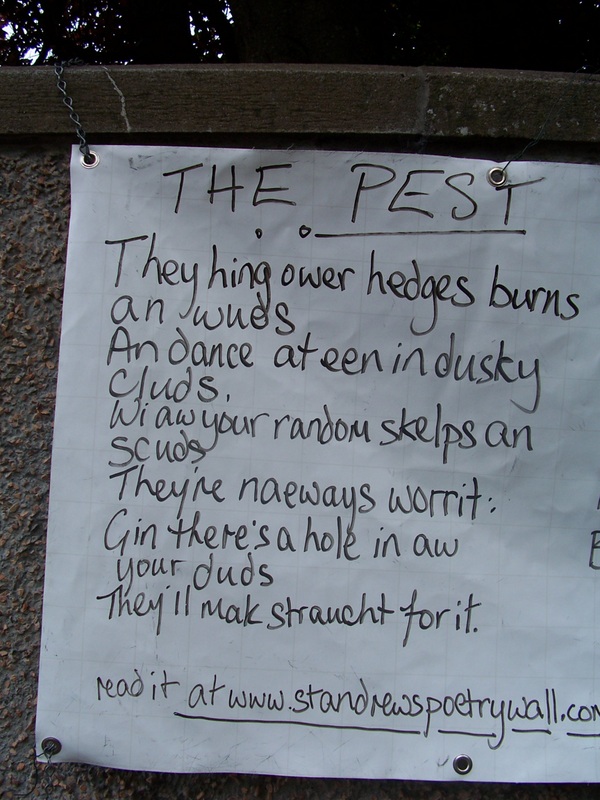 THE PEST
They hing ower hedges burns
an wuds
An dance at een in dusky
cluds.
Wi aw your random skelps an
scuds
They're naeways worrit:
Gin there's a hole in aw
your duds
They'll mak straucht for it.
read it at www.standrewspoetrywall.com